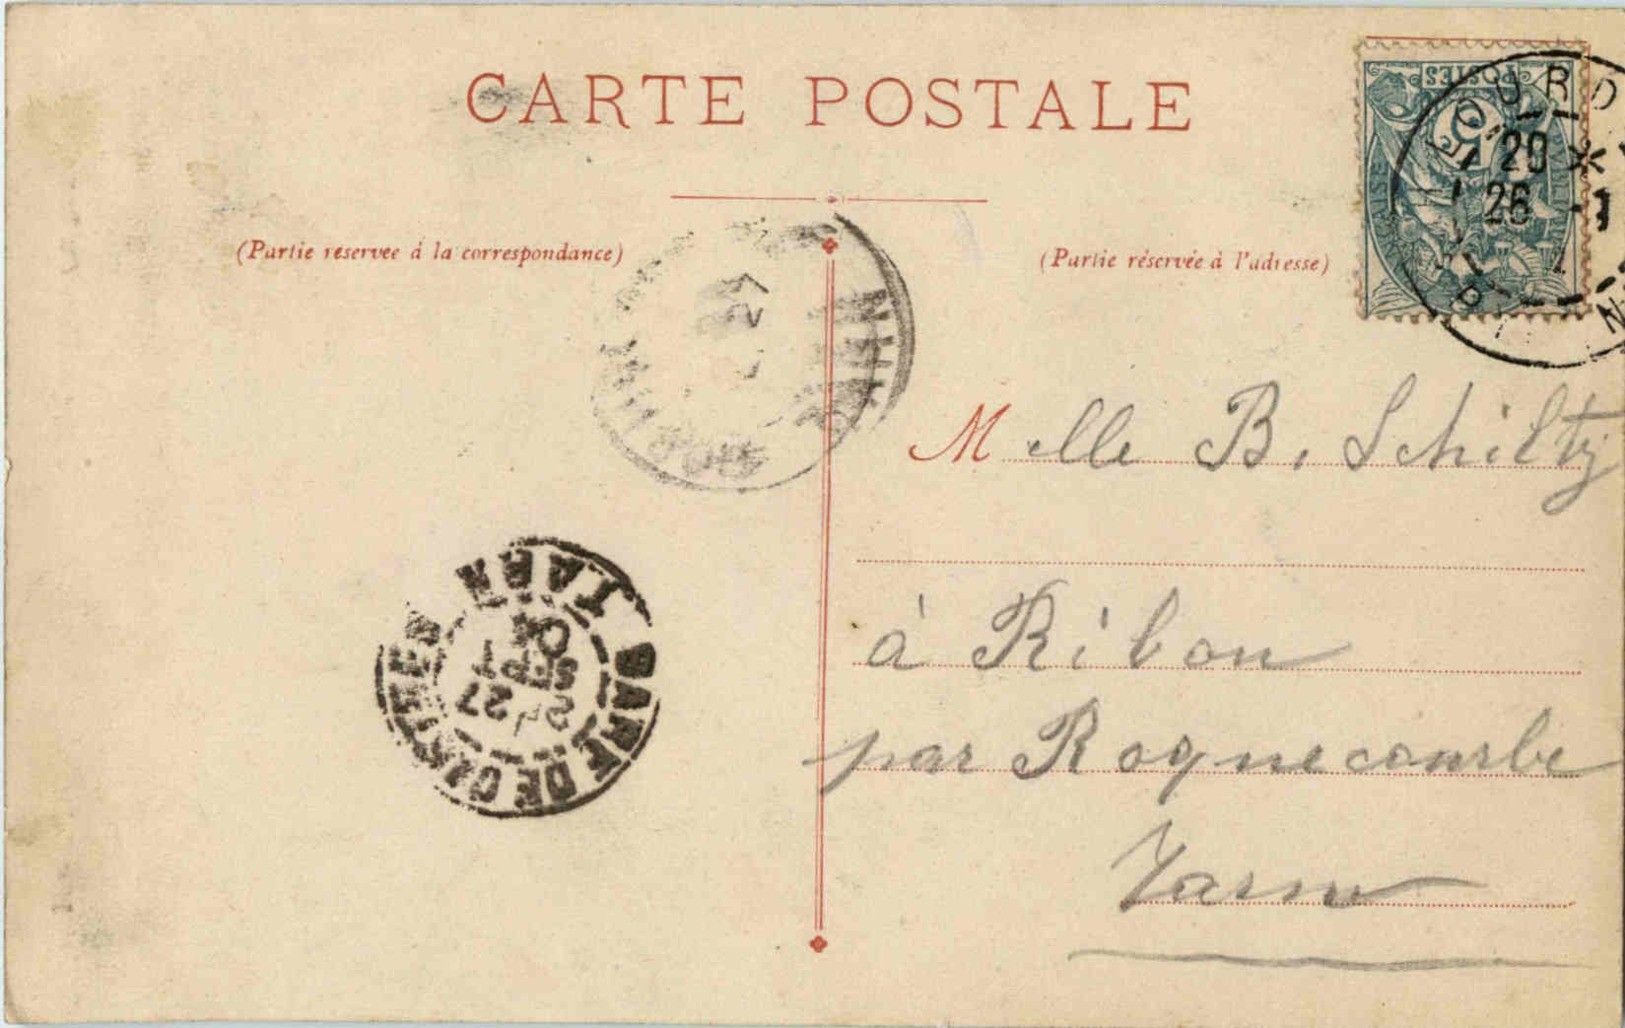 CARTE POSTALE
(Partie réservée à la correspondance)
(Partie réservée à l'adresse)
POSTES
5
20 *
26 -
27
Melle B. Schiltz
à Ribon
par Roquecourbe
Tarn
GARE DE CASTRES
TARN
27
SEPT
04